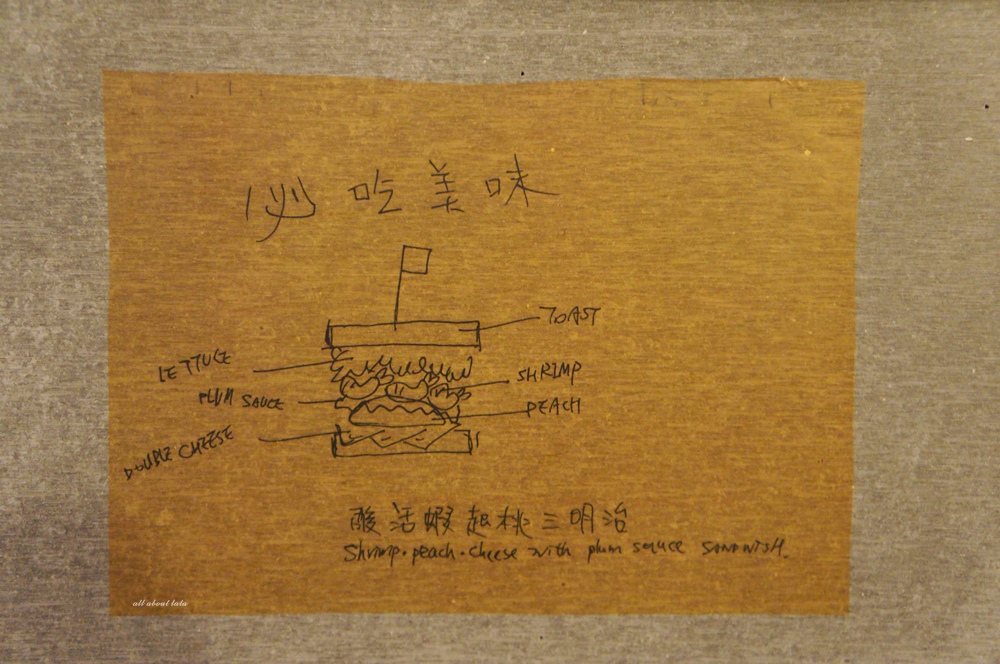 必吃美味
TOAST
LETTUCE
SHRIMP
PLUM SAUCE
PEACH
DOUBLE CHEESE
酸活蝦起桃三明治
Shrimp·peach·cheese with plum sauce SANDWISH.
all about lulu